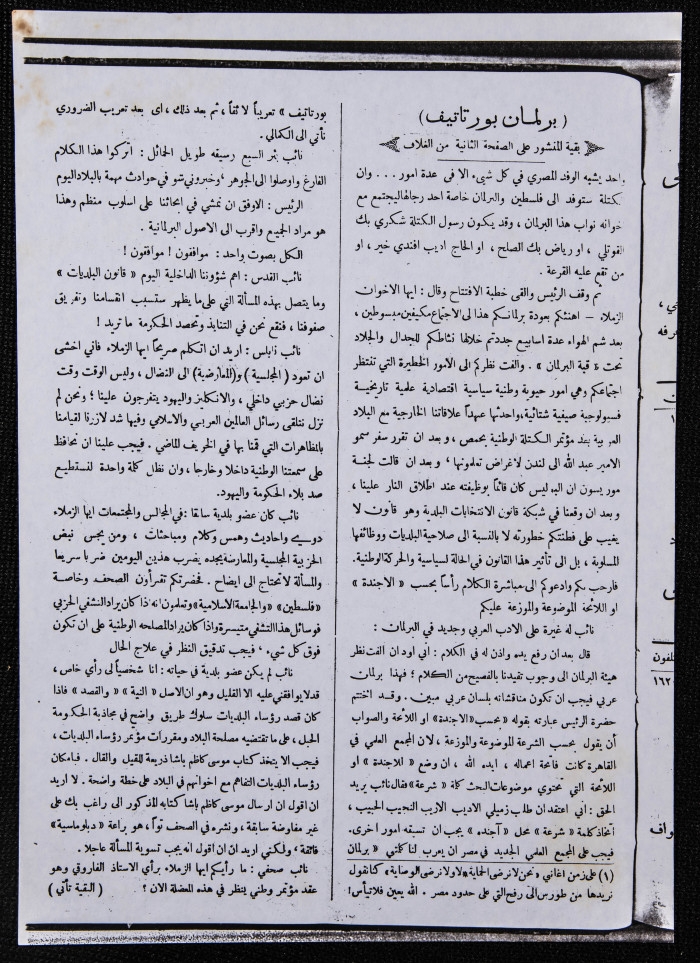 ( برلمان بورتاتيف )
بقية المنشور على الصفحة الثانية من الغلاف
واحد يشبه الوفد المصري في كل شيء الا في عدة امور . . . وان
الكتلة ستوفد الى فلسطين والبرلمان خاصة احد رجالها ليجتمع مع
اخوانه نواب هذا البرلمان ، وقد يكون رسول الكتلة شكري بك
القوتلي ، او رياض بك الصلح ، او الحاج اديب افندي خير ، او
من تقع عليه القرعة .
ثم وقف الرئيس والقى خطبة الافتتاح وقال : ايها الاخوان
الزملاء – اهنئكم بعودة برلمانكم هذا الى الاجتماع مكيفين مبسوطين ،
بعد شم الهواء عدة اسابيع جددتم خلالها نشاطكم للجدال والجلاد
تحت « قبة البرلمان » . والفت نظركم الى الامور الخطيرة التي تنتظر
اجتماعكم وهي امور حيوية وطنية سياسية اقتصادية علمية تاريخية
فسيولوجية صيفية شتائية، واحدثها عهداً علاقاتنا الخارجية مع البلاد
العربية بعد مؤتمر الكتلة الوطنية بحمص ، وبعد ان تقرر سفر سمو
الامير عبد الله الى لندن لاغراض تعلمونها ، وبعد ان قالت لجنة
موريسون ان البوليس كان قائماً بوظيفته عند اطلاق النار علينا ،
وبعد ان وقعنا في شبكة قانون الانتخابات البلدية وهو قانون لا
يغيب على فطنتكم خطورته لا بالنسبة الى صلاحية البلديات ووظائفها
المسلوبة ، بل الى تأثير هذا القانون في الحالة السياسية والحركة الوطنية.
فارحب بكم وادعوكم الى مباشرة الكلام رأساً بحسب « الاجندة »
او اللائحة الموضوعة والموزعة عليكم
نائب له غيرة على الادب العربي وجديد في البرلمان :
قال بعد ان رفع يده واذن له في الكلام : اني اود ان الفت نظر
هيئة البرلمان الى وجوب تقيدنا بالفصيح من الكلام ؛ فهذا برلمان
عربي فيجب ان تكون مناقشاته بلسان عربي مبين . وقد اختتم
حضرة الرئيس عبارته بقوله «بحسب «الاجندة» او اللائحة والصواب
أن يقول بحسب الشرعة الموضوعة والموزعة ، لان المجمع العلمي في
القاهرة كانت فاتحة اعماله ، ايده الله ، ان وضع « للاجندة » او
اللائحة التي تحتوي موضوعات البحث كلمة « شرعة » فقال نائب يريد
الحق : أني أعتقد ان طلب زميلي الاديب الاريب النجيب الحبيب ،
أتخاذ كلمة « شرعة » محل « أجنده » يجب ان تسبقه امور اخرى.
فيجب على المجمع العلمي الجديد في مصر ان يعرب لنا كلمتي « برلمان
(١) على زمن اغاني «نحن لا نرضى الحماية» لا ولا نرضى الوصاية» كنا نقول
نريدها من طورس الى رفح التي على حدود مصر . الله يعين فلا تيأس!
بورتاتيف » تعريباً لائقاً ، ثم بعد ذلك ، اى بعد تعريب الضروري
نأتي الى الكمالي .
نائب بئر السبع رسيفه طويل الحائل : اتركوا هذا الكلام
الفارغ واوصلوا الى الجوهر ‘ وخبروني شو في حوادث مهمة بالبلاد اليوم
الرئيس : الاوفق ان نمشي في ابحاثنا على اسلوب منظم وهذا
هو مراد الجميع واقرب الى الاصول البرلمانية .
الكل بصوت واحد : موافقون ! موافقون !
نائب القدس : اهم شؤوننا الداخلية اليوم « قانون البلديات »
وما يتصل بهذه المسألة التي على ما يظهر ستسبب انقسامنا وتفريق
صفوفنا ، فنقع نحن في التنابذ وتحصد الحكومة ما تريد !
نائب نابلس : اريد ان اتكلم صريحاً ايها الزملاء فاني اخشى
ان تعود ( المجلسية ) و(المعارضية) الى النضال ، وليس الوقت وقت
نضال حزبي داخلي ، والانكليز واليهود يتفرجون علينا ؛ ونحن لم
نزل نتلقى رسائل العالمين العربي والاسلامي وفيها شد لازرنا لقيامنا
بالمظاهرات التي قمنا بها في الخريف الماضي . فيجب علينا ان نحافظ
على سمعتنا الوطنية داخلا وخارجا ، وان نظل كملة واحدة لنستطيع
صد بلاء الحكومة واليهود.
نائب كان عضو بلدية سابقا : في المجالس والمجتمعات ايها الزملاء
دوسيي واحاديث وهمس وكلام ومباحثات ، ومن يجس نبض
الحزبية المجلسية والمعارضة يجده يضرب هذين اليومين ضرباً سريعا
والمسألة لا تحتاج الى ايضاح . فحضرتكم تقرأون الصحف وخاصة
«فلسطين» «والجامعة الاسلامية» وتعلمون انه اذا كان يراد التشفي الحزبي
فوسائل هذا التشفي متيسرة واذا كان يراد المصلحه الوطنية على ان تكون
فوق كل شيء ، فيجب تدقيق النظر في علاج الحال
نائب لم يكن عضو بلدية في حياته : انا شخصياً لي رأي خاص ،
قد لا يوافقني عليه الا القليل وهو ان الاصل « النية » والقصد » فاذا
كان قصد رؤساء البلديات سلوك طريق واضح في مجاذبة الحكومة
الحبل ، على ما تقتضيه مصلحة البلاد ومقررات مؤتمر رؤساء البلديات ،
فيجب الا يتخذ كتاب موسى كاظم باشا ذريعة للقيل والقال . فبامكان
رؤساء البلديات التفاهم مع اخوانهم في البلاد على خطة واضحة . لا اريد
ان اقول ان ارسال موسى كاظم باشا كتابه المذكور الى راغب بك على
غير مفاوضة سابقة ، ونشره في الصحف توًا ، هو براعة « دبلوماسية »
فائقة ‘ ولكني اريد ان ان اقول انه يجب تسوية المسألة عاجلا .
نائب صحفي : ما رأيكم ايها الزملاء برأي الاستاذ الفاروقي وهو
عقد مؤتمر وطني ينظر في هذه المعضلة الان ؛ ( البقية تأتي )